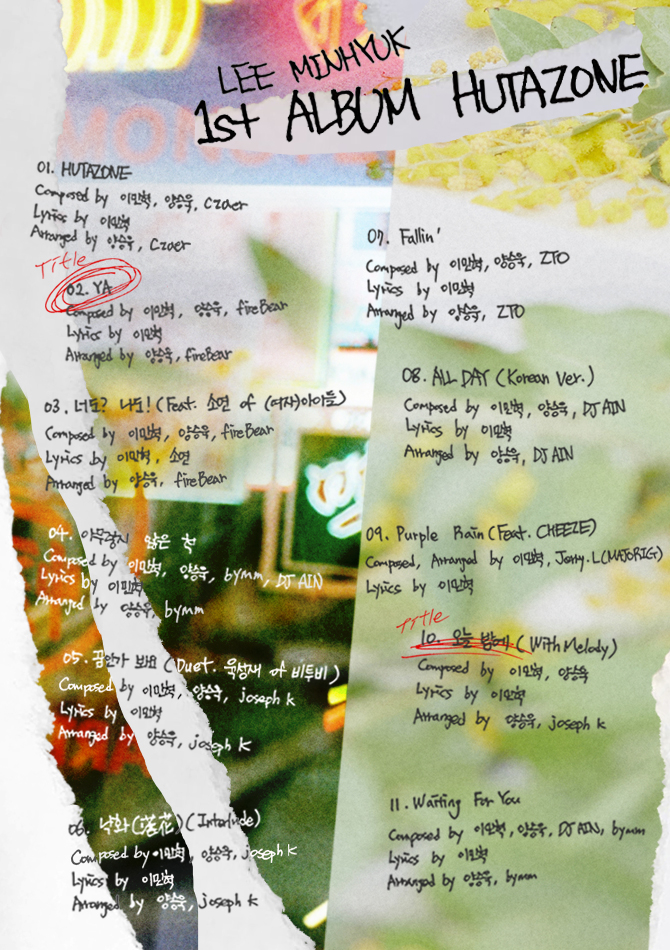 LEE MINHYUK
1st ALBUM HUTAZONE
01. HUTAZONE
Composed by 이민혁, 양승욱, Czaer
Lyrics by 이민혁
Arranged by 양승욱, Czaer
Title
02. YA
Composed by 이민혁, 양승욱, fireBear
Lyrics by 이민혁
Arranged by 양승욱, fireBear
03. 너도? 나도! (Feat. 소연 of (여자)아이들)
Composed by 이민혁, 양승욱, fireBear
Lyrics by 이민혁, 소연
Arranged by 양승욱, fireBear
04. 아무렇지 않은 척
Composed by 이민혁, 양승욱, bymm, DJ AIN
Lyrics by 이민혁
Arranged by 양승욱, bymm
05. 꿈인가 봐요 (Duet. 육성재 of 비투비)
Composed by 이민혁, 양승욱, joseph k
Lyrics by 이민혁
Arranged by 양승욱, joseph k
06. 낙화(落花) (Interlude)
Composed by 이민혁, 양승욱, joseph k
Lyrics by 이민혁
Arranged by 양승욱, joseph k
07. Fallin'
Composed by 이민혁, 양승욱, ZTO
Lyrics by 이민혁
Arranged by 양승욱, ZTO
08. ALL DAY (Korean Ver.)
Composed by 이민혁, 양승욱, DJ AIN
Lyrics by 이민혁
Arranged by 양승욱, DJ AIN
09. Purple Rain (Feat. CHEEZE)
Composed, Arranged by 이민혁, Jerry.L(MAJORIG)
Lyrics by 이민혁
Title
10. 오늘 밤에 (With Melody)
Composed by 이민혁, 양승욱
Lyrics by 이민혁
Arranged by 양승욱, joseph k
11. Waiting For You
Composed by 이민혁, 양승욱, DJ AIN, bymm
Lyrics by 이민혁
Arranged by 양승욱, bymm